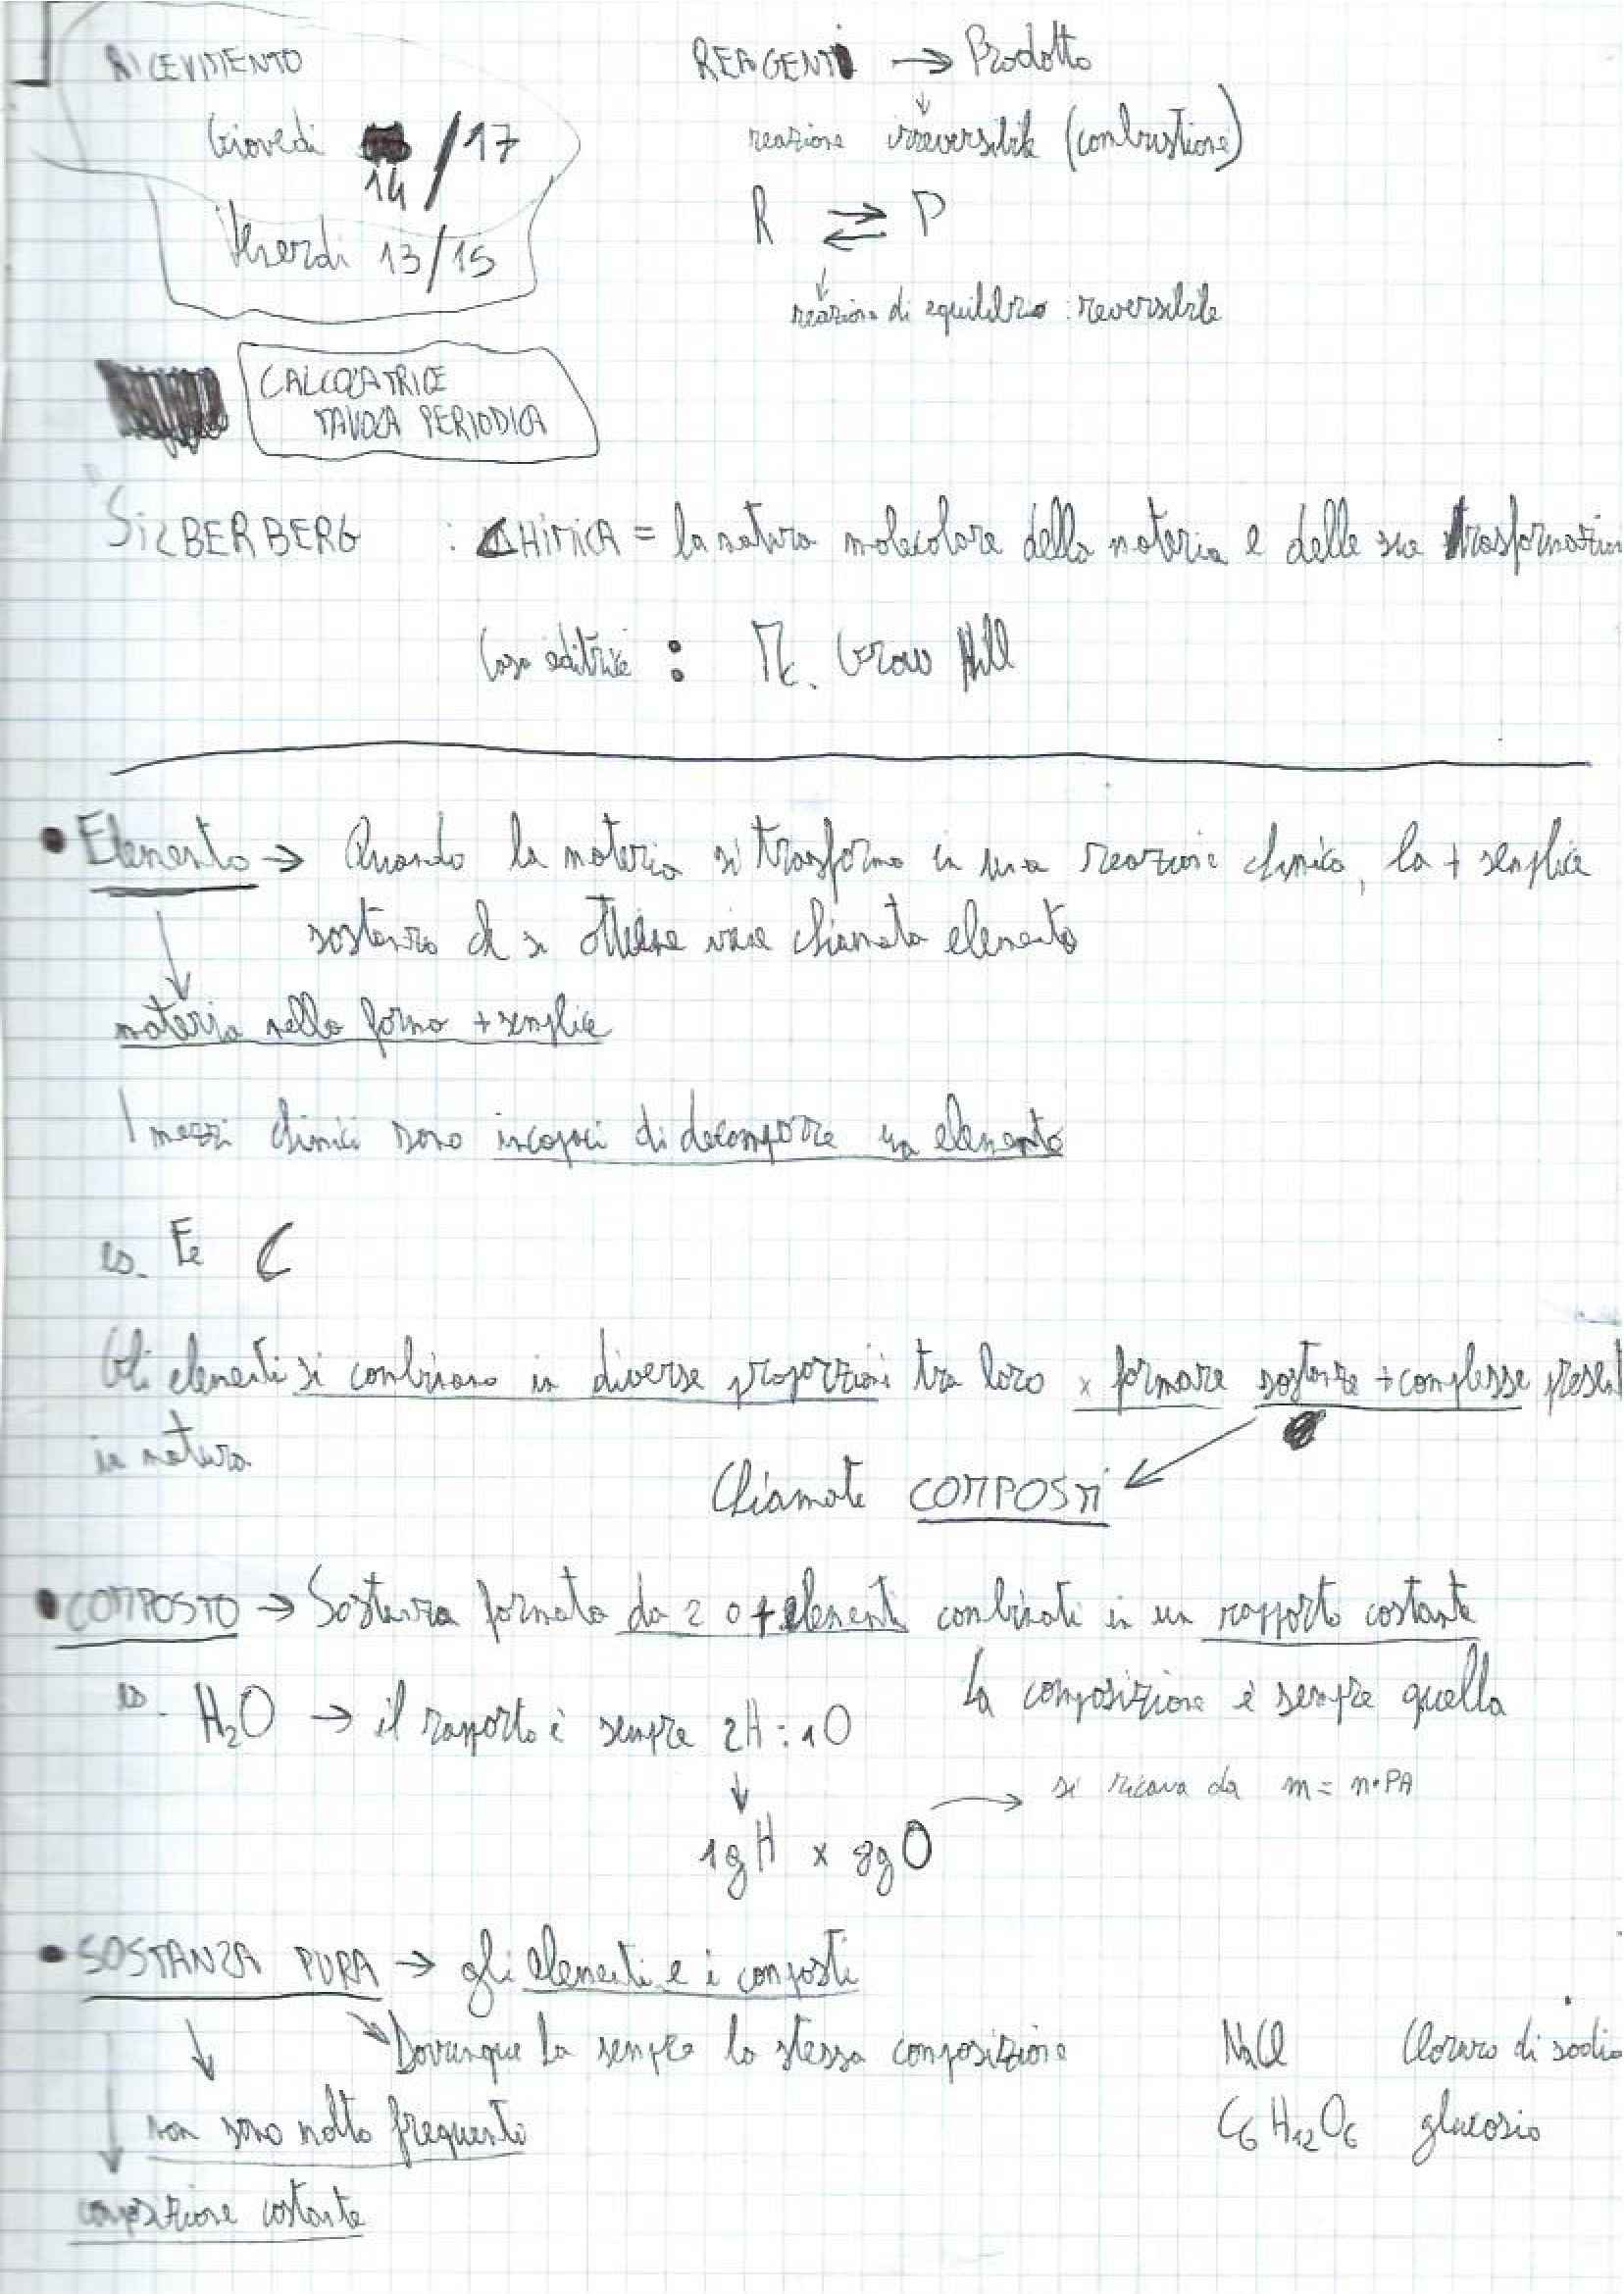 RICEVIMENTO
Giovedì 14/17
Venerdì 13/15
REAGENTI → Prodotto
reazione irreversibile (combustione)
R ⇄ P
reazione di equilibrio : reversibile
CALCOLATRICE
TAVOLA PERIODICA
SILBERBERG : CHIMICA = la natura molecolare della materia e delle sue trasformazion
Casa editrice : Mc. Graw Hill
• Elemento → Quando la materia si trasforma in una reazione chimica, la + semplice
sostanza ch si ottiene viene chiamata elemento
materia nella forma + semplice
I mezzi chimici sono incapaci di decomporre un elemento
es. Fe C
Gli elementi si combinano in diverse proporzioni tra loro x formare sostanze + complesse present
in natura
Chiamate COMPOSTI
• COMPOSTO → Sostanza formata da 2 o + elementi combinati in un rapporto costante
La composizione è sempre quella
es. H₂O → il rapporto è sempre 2H : 1O
si ricava da m = n•PA
1g H x 8g O
• SOSTANZA PURA → gli elementi e i composti
Dovunque ha sempre la stessa composizione
NaCl Cloruro di sodio
non sono molto frequenti
C₆H₁₂O₆ glucosio
composizione costante